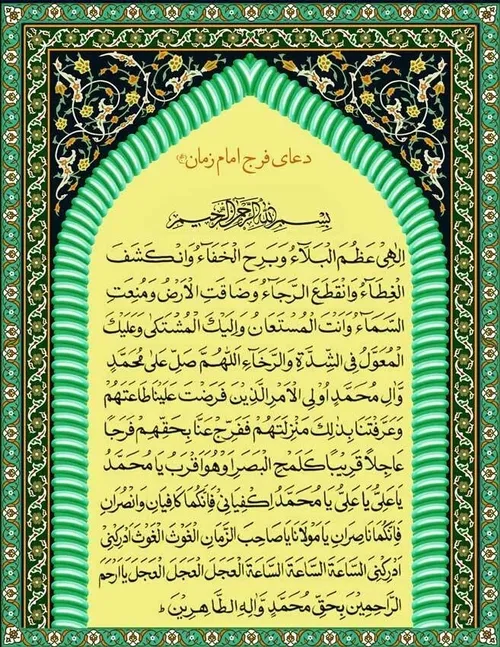 دعای فرج امام زمان
بِسْمِ اللهِ الرَّحْمنِ الرَّحيمِ
اِلهی عَظُمَ الْبَلاَّءُ وَبَرِحَ الْخَفاَّءُ وَانْکَشَفَ
الْغِطاَّءُ وَانْقَطَعَ الرَّجاَّءُ وَضاقَتِ الاَْرْضُ وَمُنِعَتِ
السَّماَّءُ وَاَنْتَ الْمُسْتَعانُ وَاِلَیْکَ الْمُشْتَکی وَعَلَیْکَ
الْمُعَوَّلُ فِی الشِّدَّةِ وَالرَّخاَّءِ اَللّهُمَّ صَلِّ عَلی مُحَمَّدٍ
وَّالِ مُحَمَّدٍ اُولِی الاَْمْرِ الَّذینَ فَرَضْتَ عَلَیْنا طاعَتَهُمْ
وَعَرَّفْتَنا بِذلِکَ مَنْزِلَتَهُمْ فَفَرِّجْ عَنّا بِحَقِّهِمْ فَرَجاً
عاجِلاً قَریباً کَلَمْحِ الْبَصَرِ اَوْ هُوَ اَقْرَبُ یا مُحَمَّدُ
یا عَلِیُّ یا عَلِیُّ یا مُحَمَّدُ اِکْفِیانی فَاِنَّکُما کافِیانِ وَانْصُرانی
فَاِنَّکُما ناصِرانِ یا مَوْلانا یا صاحِبَ الزَّمانِ الْغَوْثَ الْغَوْثَ اَدْرِکْنی
اَدْرِکْنی السّاعَةَ السّاعَةَ السّاعَةَ الْعَجَلَ الْعَجَلَ الْعَجَلَ یا اَرْحَمَ
الرّاحِمینَ بِحَقِّ مُحَمَّدٍ وَالِهِ الطّاهِرینَ